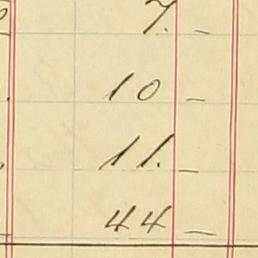 7. –
10 –
11. –
44 –